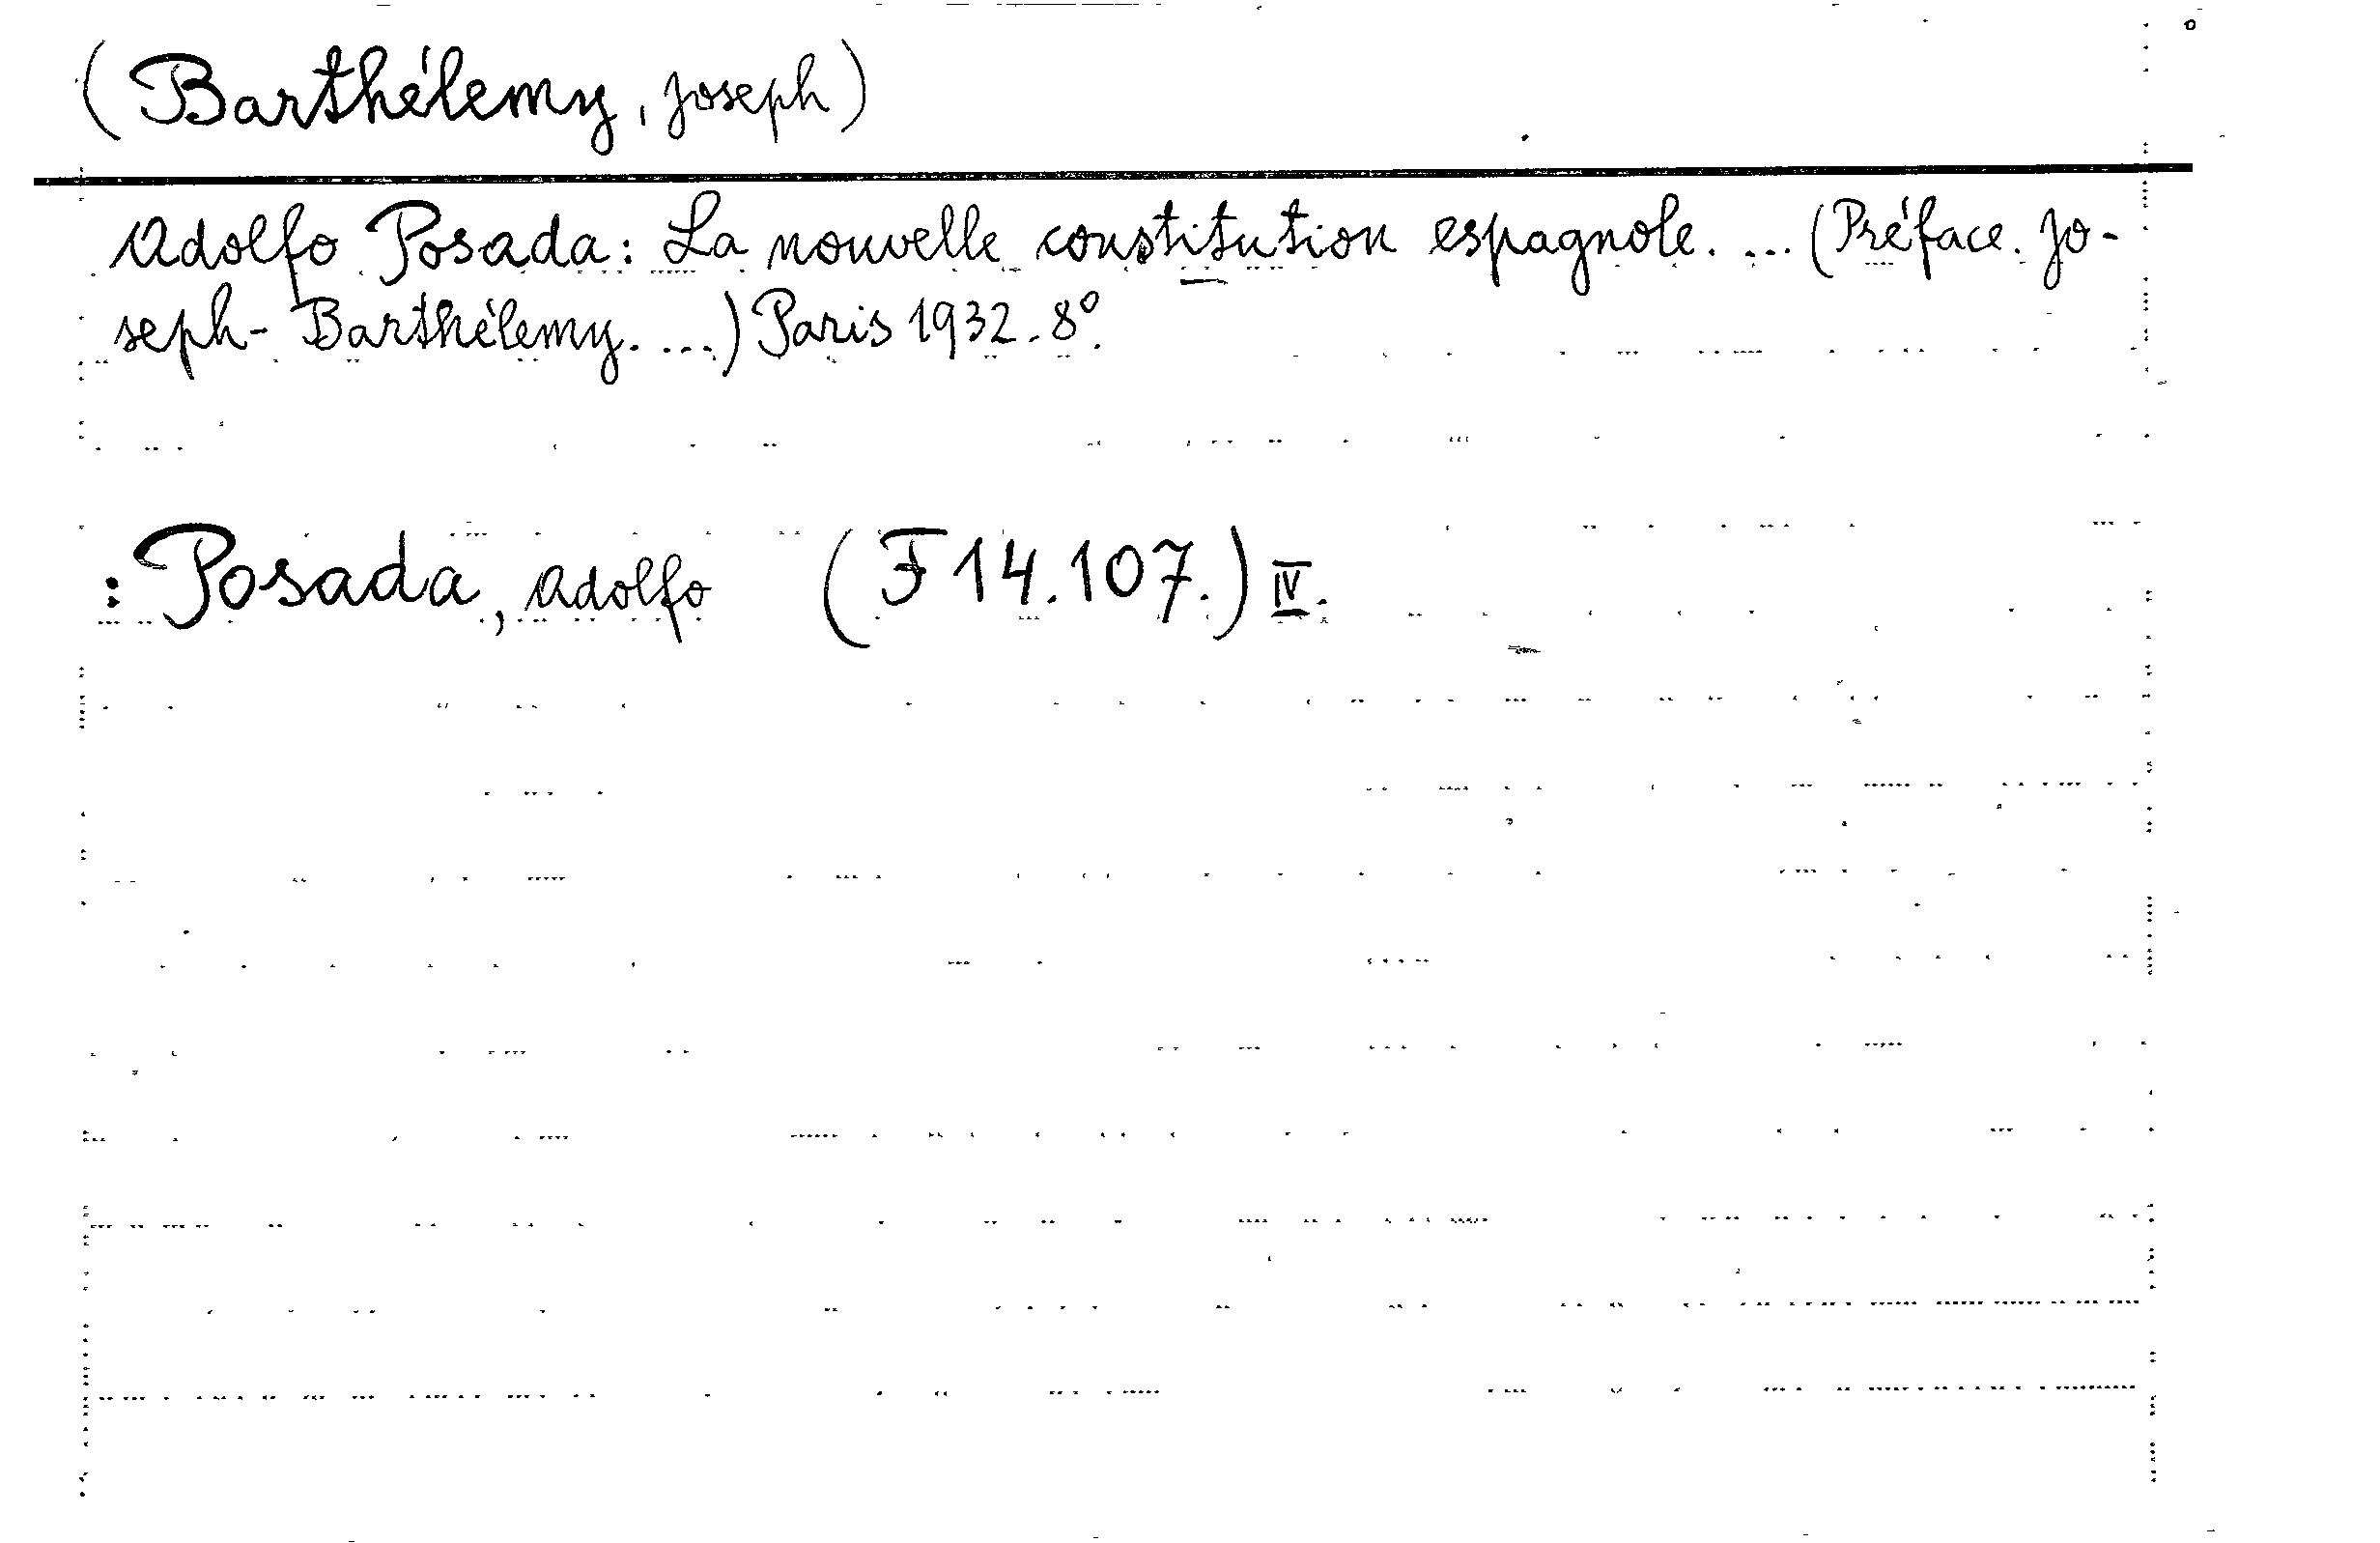 (Barthélemy, Joseph)
Adolfo Posada: La nouvelle constitution espagnole. ... (Préface. Jo-
seph-Barthélemy. ...) Paris 1932. 8°.
: Posada, Adolfo (F 14.107.) IV.